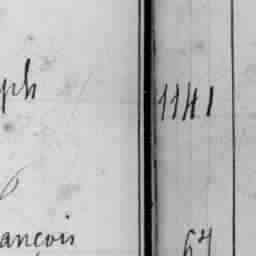 ph 1141
ançois 67